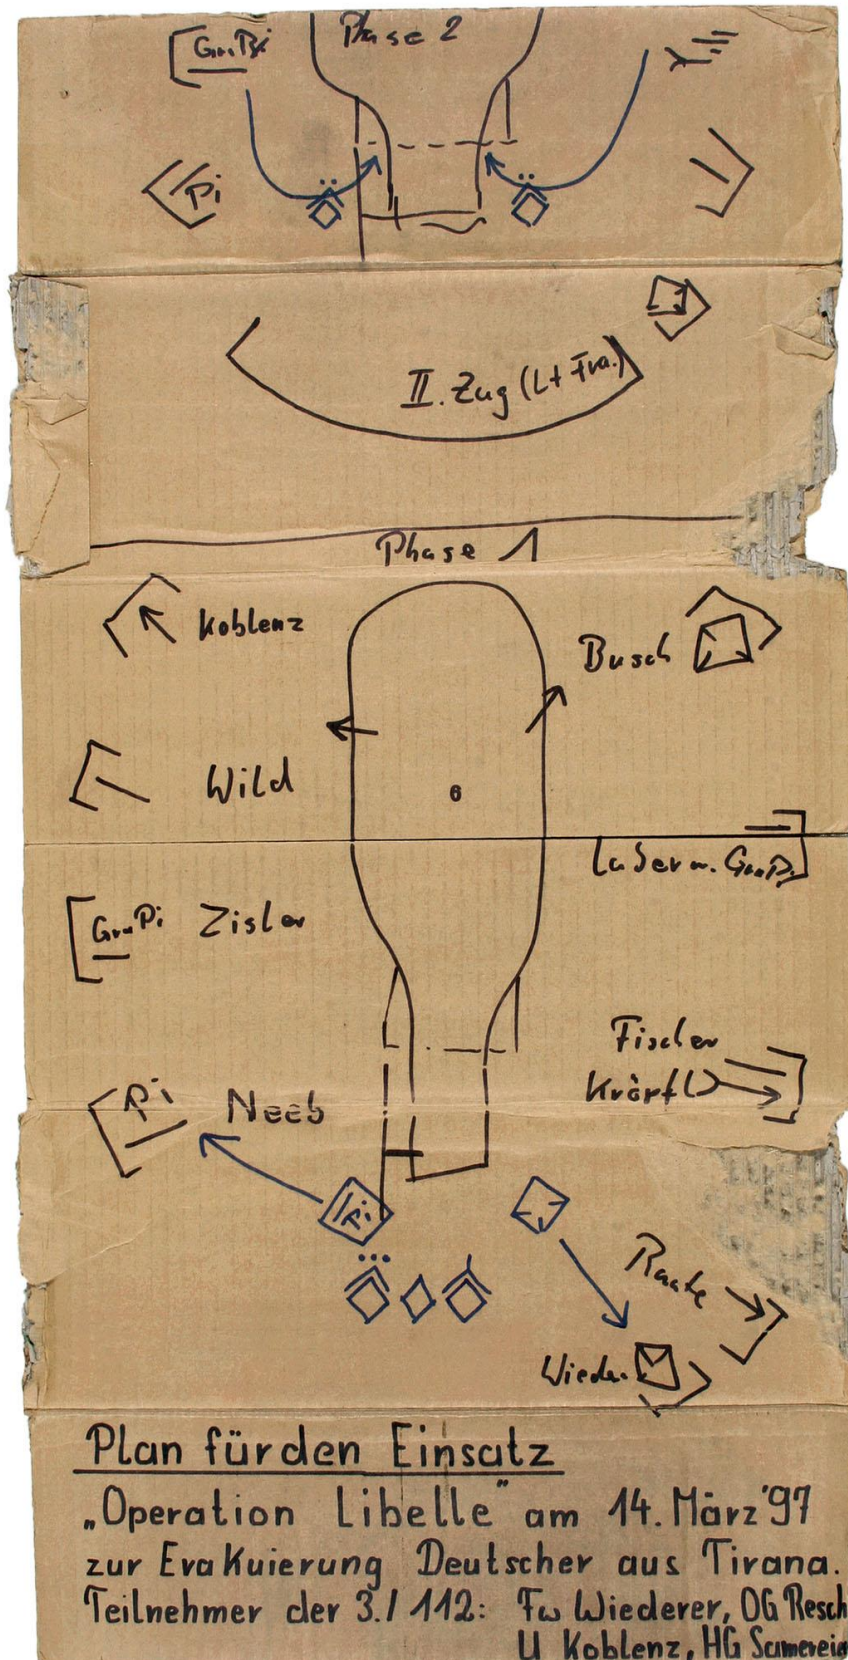 Phase 2
GruPi
Pi
II. Zug (Lt Fra.)
Phase 1
Koblenz
Busch
Wild
6
GruPi Zisler
Fischer
Pi Neeb
Pi
Raate
Wieder.
Plan für den Einsatz
„Operation Libelle" am 14. März '97
zur Evakuierung Deutscher aus Tirana.
Teilnehmer der 3./112: Fw Wiederer, OG Resch
U Koblenz, HG